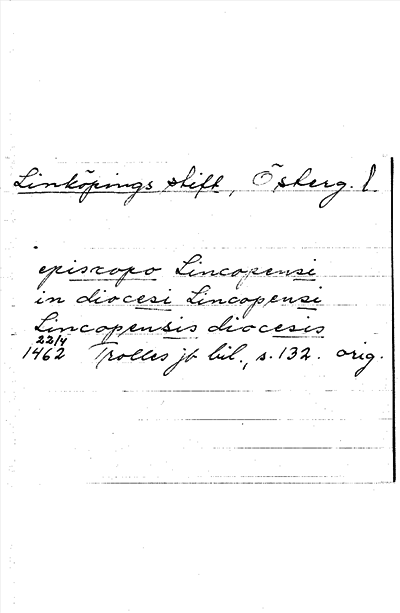 Linköpings stift, Österg. l.
episcopo Lincopensi
in diocesi Lincopensi
Lincopensis diocesis
22/4
1462 Trolles jb bil., s. 132. orig.